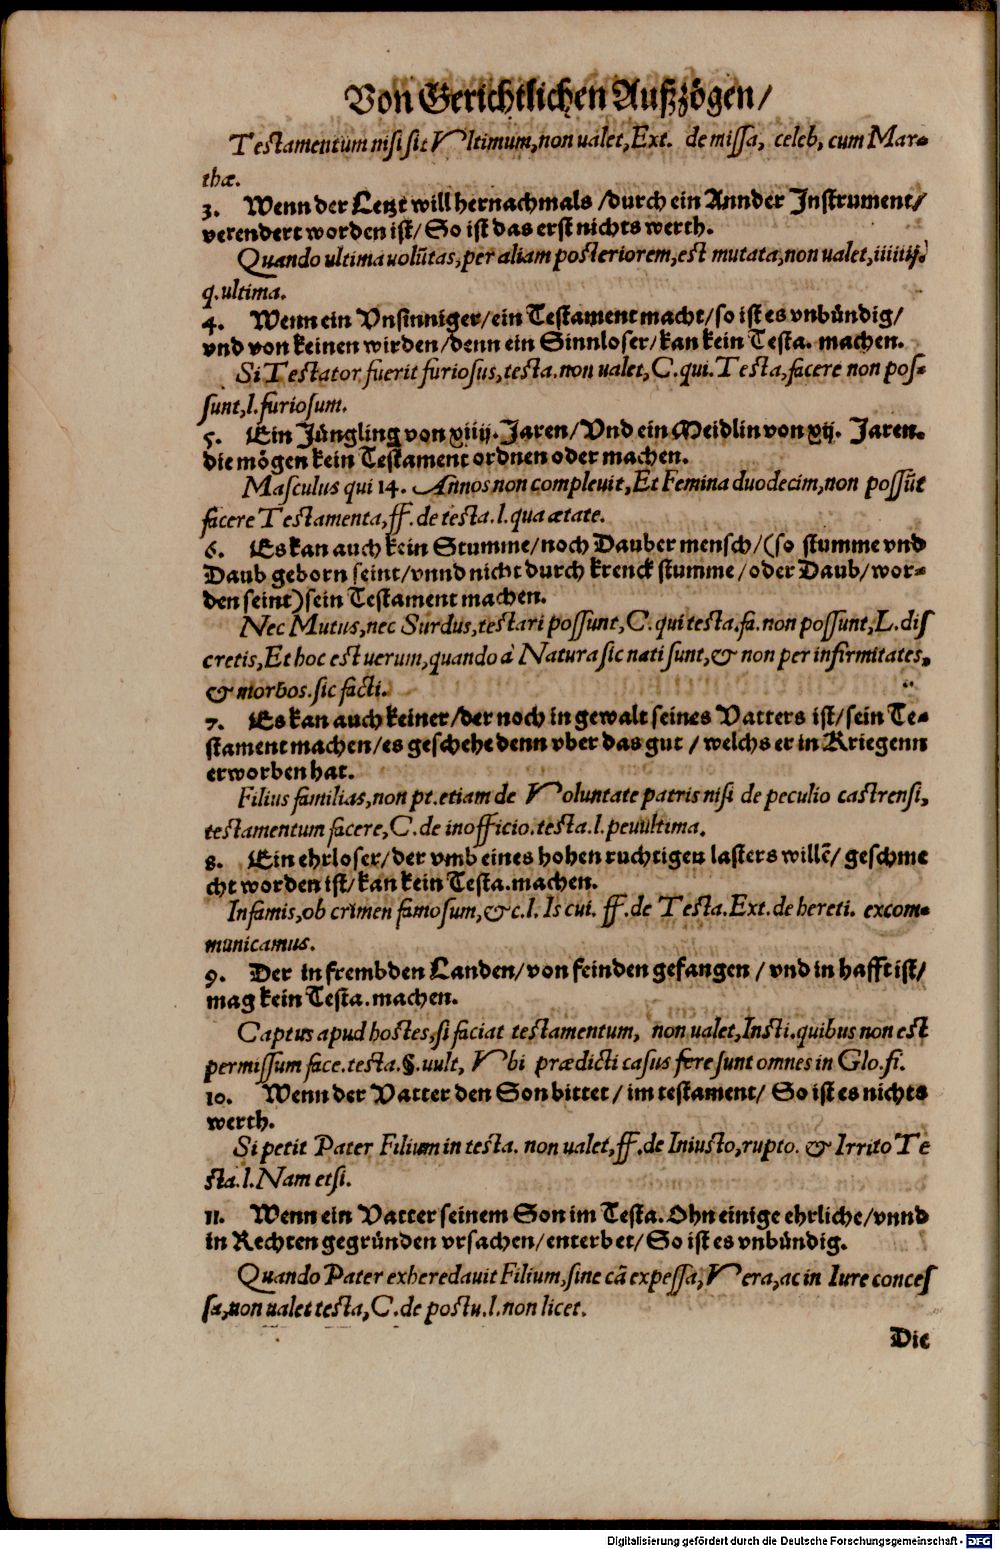 Von Gerichtlichen Außzögen/
Testamentum nisi sit Vltimum, non ualet, Ext. de missa, celeb, cum Mar-
thæ.
3. Wenn der Letzt will hernachmals /durch ein Annder Instrument/
verendert worden ist/ So ist das erst nichts werth.
Quando ultima uolūtas, per aliam posteriorem, est mutata, non ualet,
q. ultima.
4. Wenn ein Vnsinniger/ein Testament macht/so ist es vnbündig/
vnd von keinen wirden/denn ein Sinnloser/kan kein Testa. machen.
Si Testator fuerit furiosus, testa. non ualet, C. qui. Testa, facere non pos-
sunt, l. furiosum.
5. Ein Jüngling von xiiij. Jaren/Vnd ein Meidlin von xij. Jaren.
die mögen kein Testament ordnen oder machen.
Masculus qui 14. Annos non compleuit, Et Femina duodecim, non possūt
facere Testamenta, ff. de testa. l. qua ætate.
6. Es kan auch kein Stumme/noch Dauber mensch/(so stumme vnd
Daub geborn seint/vnnd nicht durch krenck stumme/oder Daub/wor-
den seint)sein Testament machen.
Nec Mutus, nec Surdus, testari possunt, C. qui testa. fa. non possunt, L. dis
cretis, Et hoc est uerum, quando à Natura sic nati sunt, & non per infirmitates,
& morbos. sic facti.
7. Es kan auch keiner/der noch in gewalt seines Vatters ist/sein Te-
stament machen/es geschehe denn vber das gut / welchs er in Kriegenn
erworben hat.
Filius familias, non pt. etiam de Voluntate patris nisi de peculio castrensi,
testamentum facere, C. de inofficio. testa. l. penultima.
8. Ein ehrloser/der vmb eines hohen ruchtigen lasters willē/ geschme
cht worden ist/kan kein Testa. machen.
Infamis, ob crimen famosum, &c. l. Is cui. ff. de Testa. Ext. de hereti. excom-
municamus.
9. Der in frembden Landen/von feinden gefangen / vnd in hafft ist/
mag kein Testa. machen.
Captus apud hostes, si faciat testamentum, non ualet, Insti. quibus non est
permissum face. testa. §. uult, Vbi prædicti casus fere sunt omnes in Glo. fi.
10. Wenn der Vatter den Son bittet / im testament/ So ist es nichts
werth.
Si petit Pater Filium in testa. non ualet, ff. de Iniusto, rupto. & Irrito Te
sta. l. Nam etsi.
11. Wenn ein Vatter seinem Son im Testa. Ohn einige ehrliche/vnnd
in Rechten gegründen vrsachen/enterbet/So ist es vnbündig.
Quando Pater exheredauit Filium, sine cā expessa, Vera, ac in Iure conces
sa, non ualet testa, C. de postu. l. non licet.
Die
Digitalisierung gefördert durch die Deutsche Forschungsgemeinschaft - DFG